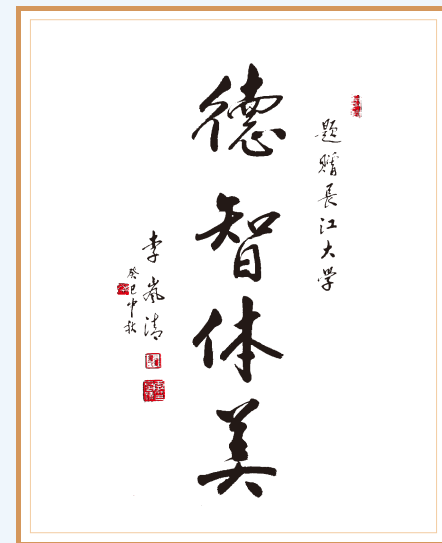 题赠長江大学
德智体美
李岚清
癸巳中秋